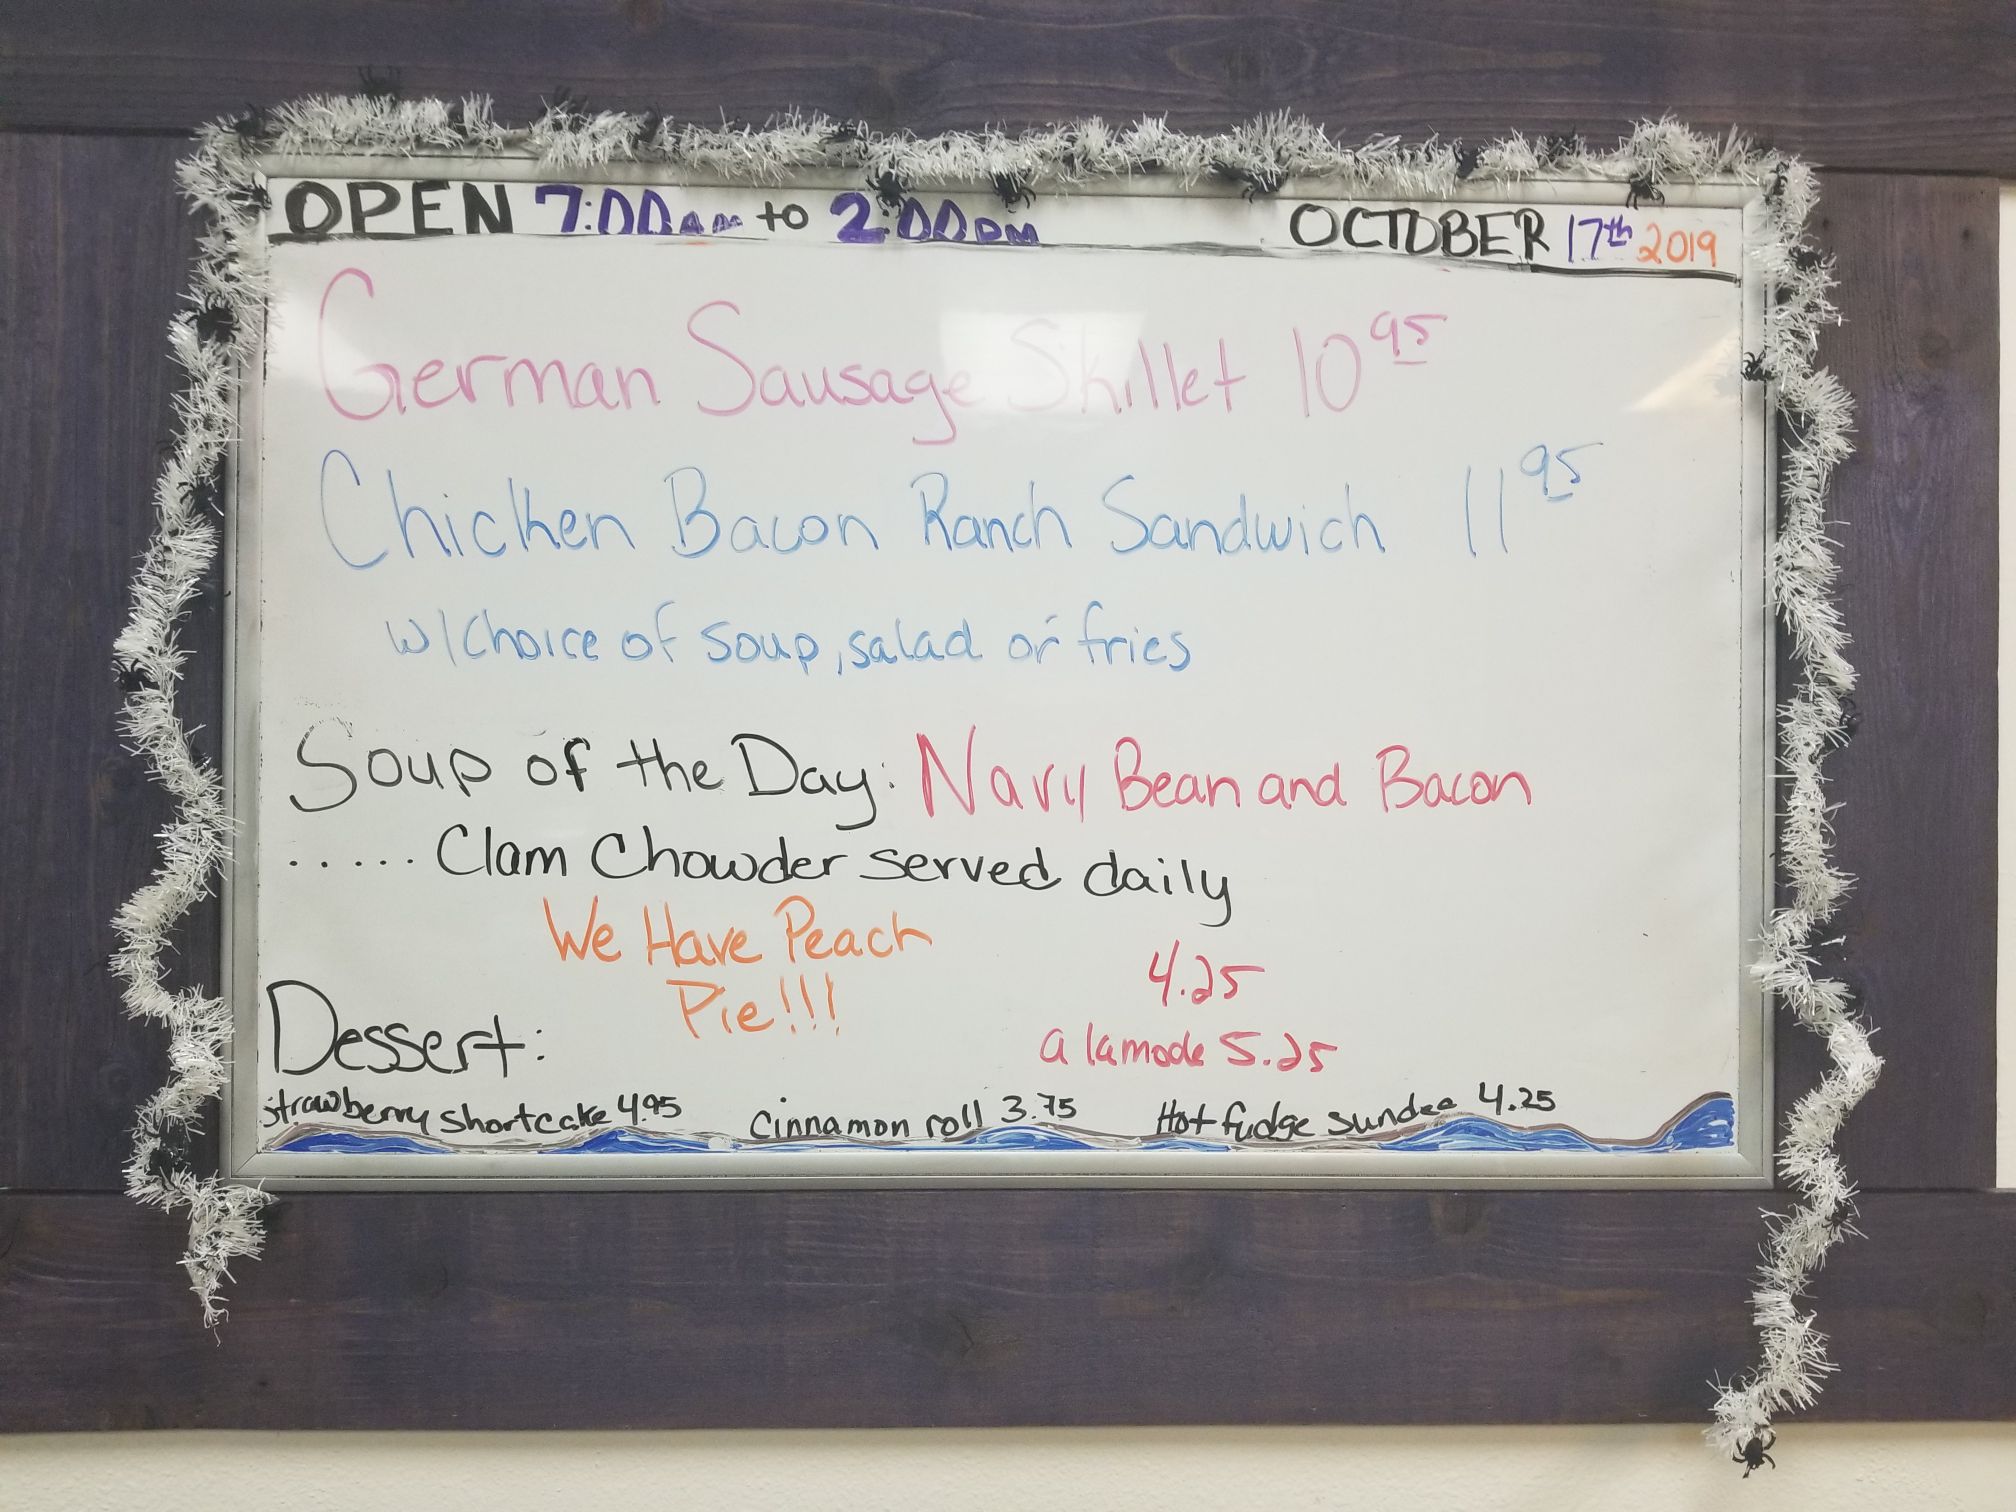 OPEN 7:00AM to 2:00PM OCTOBER 17th 2019
German Sausage Skillet 10 95
Chicken Bacon Ranch Sandwich 11 95
w/choice of soup, salad or fries
Soup of the Day: Navy Bean and Bacon
..... Clam Chowder served daily
We Have Peach
Pie!!!
4.25
a lamode 5.25
Dessert:
strawberry shortcake 4.95 cinnamon roll 3.75 Hot fudge sundae 4.25